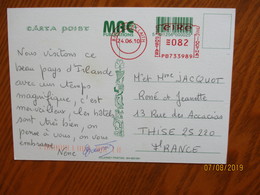 CARTA POIST
MBC
24.06.10
éire
€082
PB733989
Nous visitons ce
beau pays d'Irlande
avec un temps
magnifique, c'est
merveilleux les hôtels
sont très bien, on
pense à vous, on vous
embrasse
Nonc
Mr et Mme JACQUOT
René et Jeannette
13 Rue des Accacias
THISE 25 220
FRANCE
07/08/2019